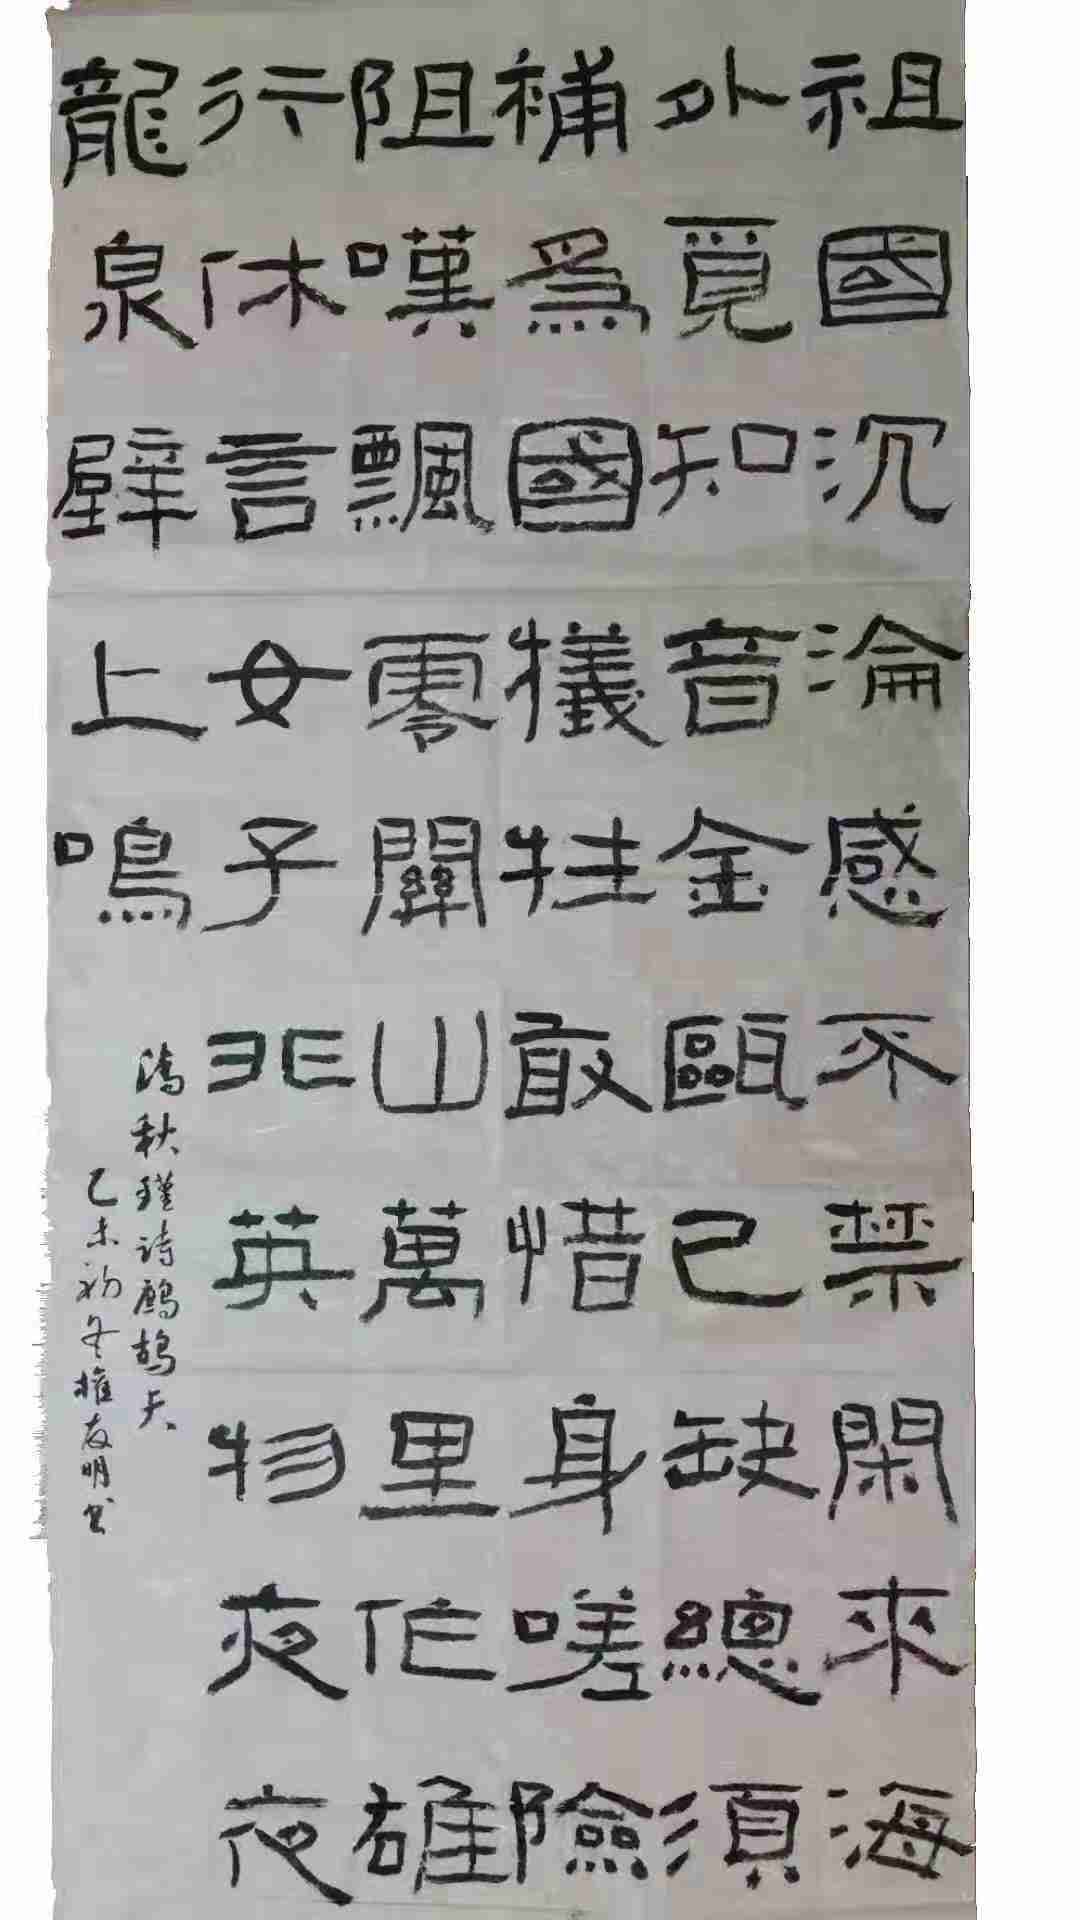 祖國沉淪感不禁閑來海
外覓知音金甌已缺總須
補為國犧牲敢惜身嗟險
阻嘆飄零關山萬里作雄
行休言女子非英物夜夜
龍泉壁上鳴
清秋瑾詩鷓鴣天
乙未初冬權友明书